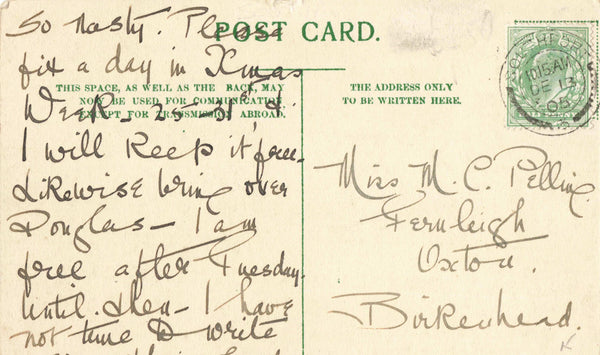 So nasty. Please
fix a day in Xmas
Week - 25-31st, &
I will keep it free.
Likewise bring over
Douglas - I am
free after Tuesday.
Until then - I have
not time to write
POST CARD.
THIS SPACE, AS WELL AS THE BACK, MAY
NOW BE USED FOR COMMUNICATION
EXCEPT FOR TRANSMISSION ABROAD.
THE ADDRESS ONLY
TO BE WRITTEN HERE.
10.15 AM
DE 13
05
Miss M. C. Pelling.
Fernleigh
Oxton.
Birkenhead.